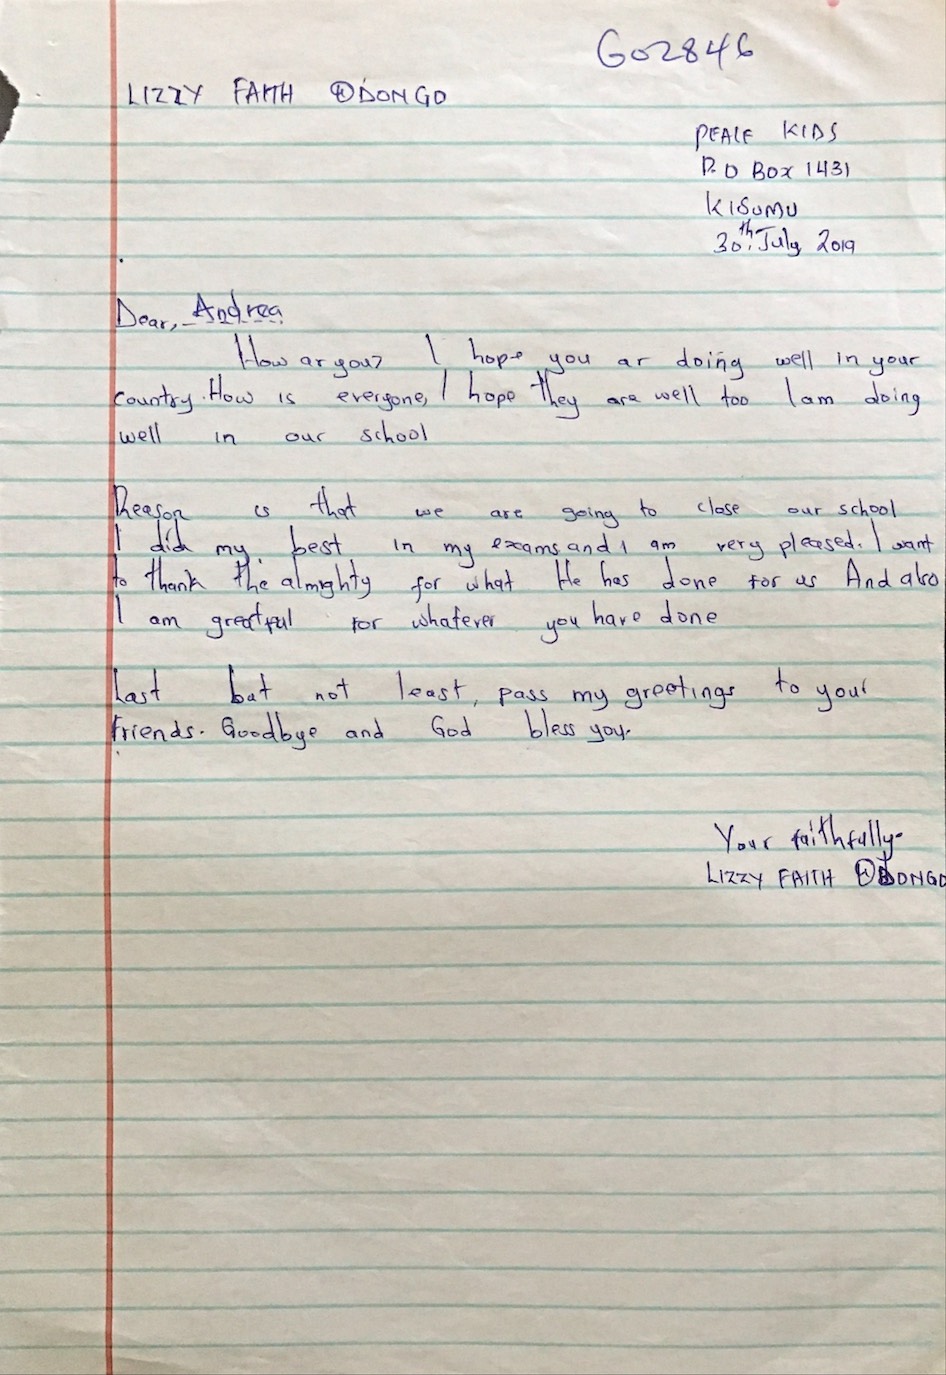 G02846
LIZZY FAITH ODONGO
PEACE KIDS
P.O BOX 1431
KISUMU
30th July 2019
Dear, Andrea
How ar you? I hope you ar doing well in your
country. How is everyone, I hope they are well too I am doing
well in our school
Reason is that we are going to close our school
I did my best in my exams and I am very pleased. I want
to thank the almighty for what He has done for us And also
I am greatful for whatever you have done
Last but not least, pass my greetings to your
friends. Goodbye and God bless you.
Your faithfully
LIZZY FAITH ODONGO